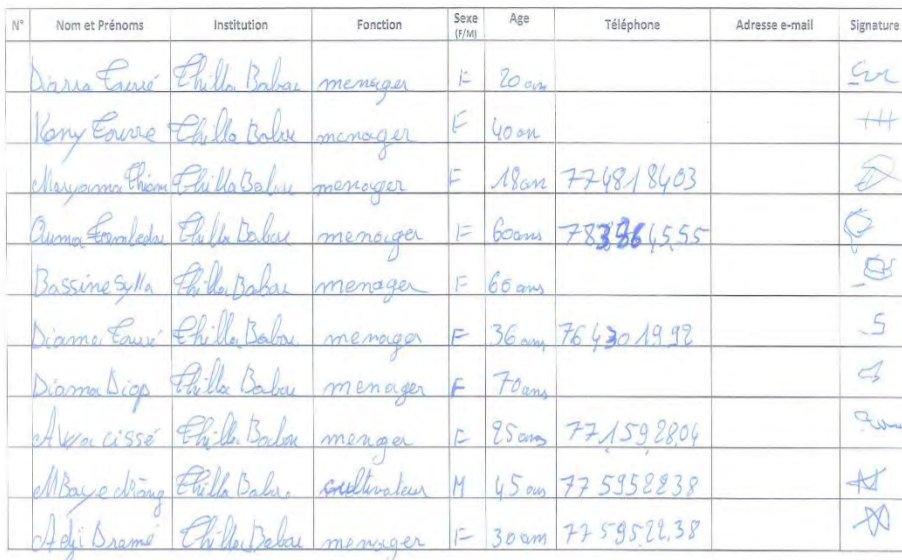 N° Nom et Prénoms Institution Fonction Sexe (F/M) Age Téléphone Adresse e-mail Signature
Diarra Touré Thilla Babou menager F 20 ans
Kany Toure Thilla Babou menager F 40 an
Maryama Thiam Thilla Babou menager F 18an 774818403
Ouma Thilla Babou menager F 60ans 7839645.55
Bassine Sylla Thilla Babou menager F 60 ans
Diama Touré Thilla Babou menager F 36 ans 764301992
Diama Diop Thilla Babou menager F 70ans
Awa cissé Thilla Babou menager F 25ans 771592804
MBaye Thilla Babou cultivateur M 45 ans 775952238
Adji Dramé Thilla Babou menager F 30am 775952238